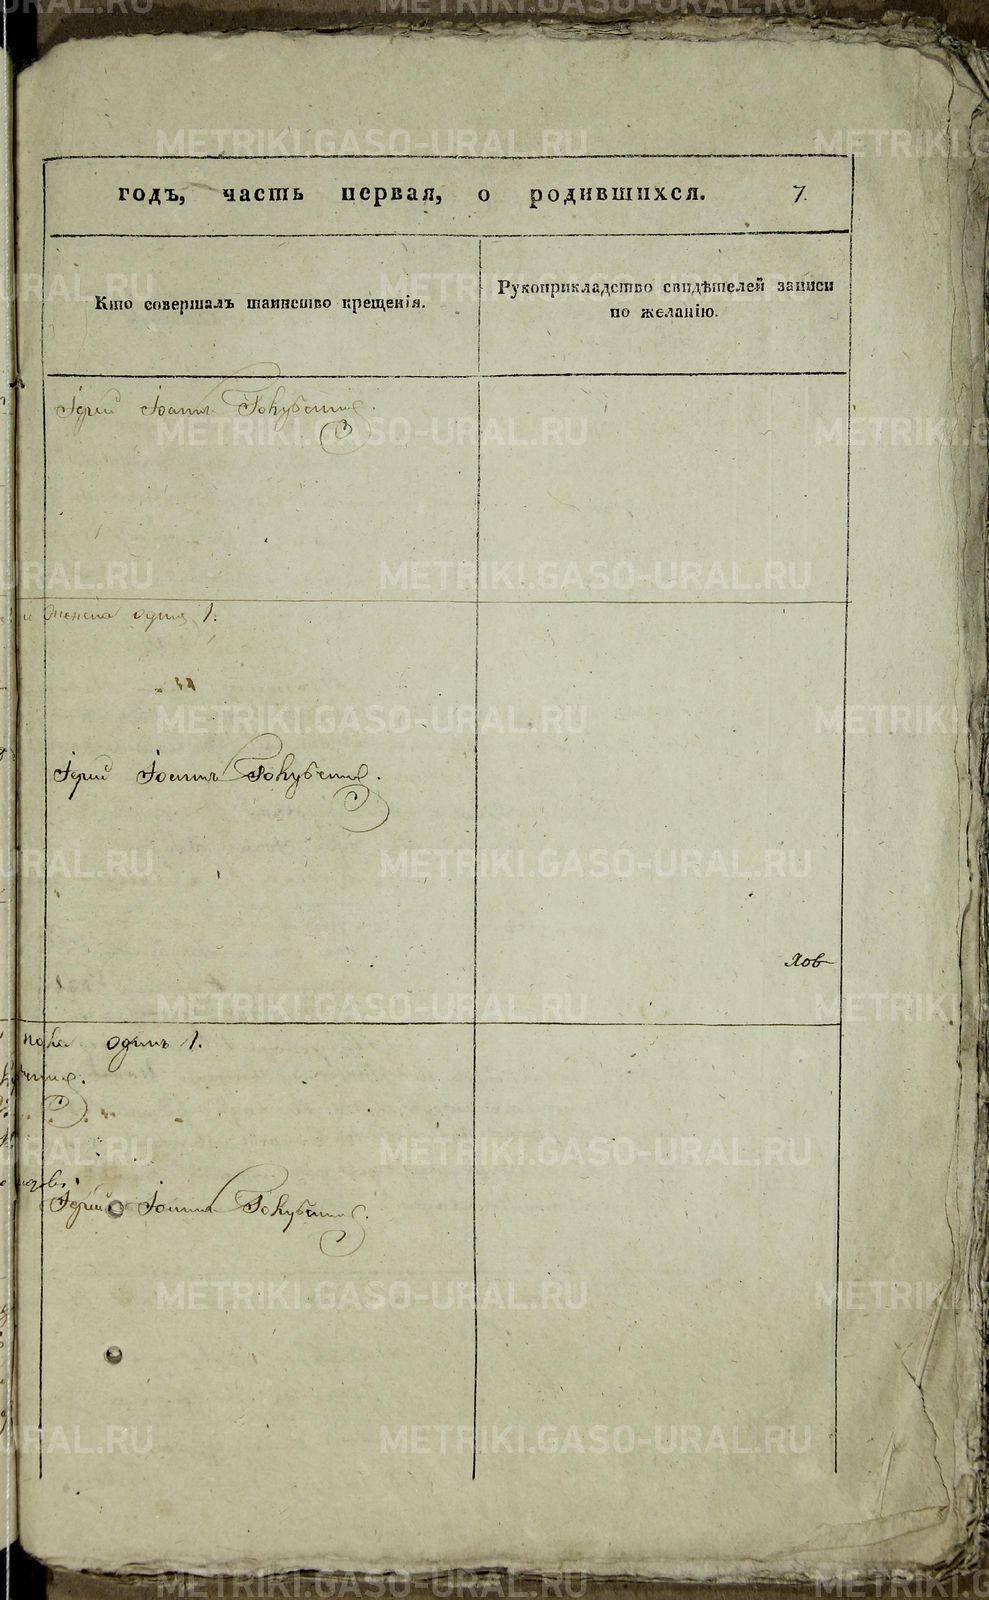 годъ, часть первая, о родившихся. 7.
Кто совершалъ таинство крещенія.
Рукоприкладство свидѣтелей записи
по желанію.
Іерей Іоаннъ
женска одна 1.
Іерей Іоаннъ
хов
пола одинъ 1.
Іерей Іоаннъ
METRIKI.GASO-URAL.RU